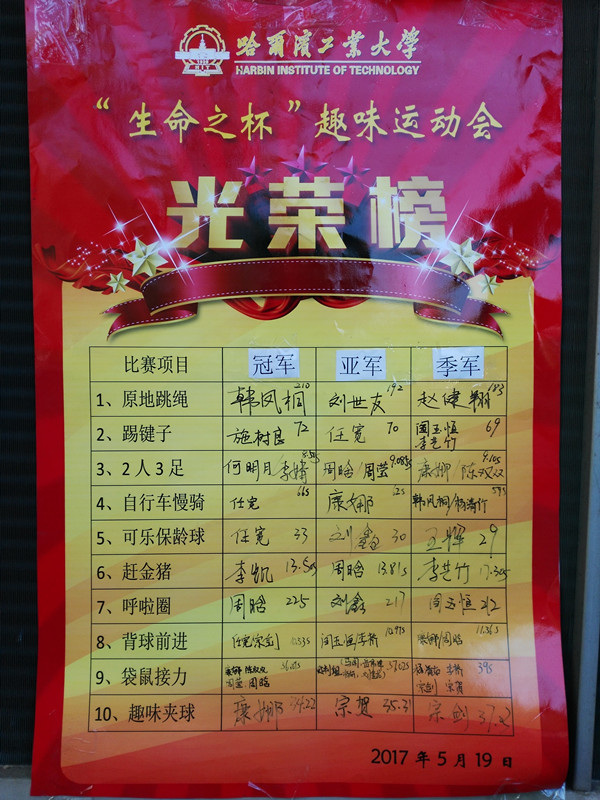 哈尔滨工业大学
HARBIN INSTITUTE OF TECHNOLOGY
“生命之杯”趣味运动会
光荣榜
比赛项目 冠军 亚军 季军
1、原地跳绳 韩凤桐 210 刘世友 192 赵健翔 183
2、踢键子 施树良 72 任宽 70 周玉恒 李芝竹 69
3、2人3足 何明月/李婧 周晗/周莹 9.08s 康娜/陈双双 9.10s
4、自行车慢骑 任宽 66s 康娜 62s 韩凤桐/杨清竹 59s
5、可乐保龄球 任宽 33 刘鑫 30 王辉 29
6、赶金猪 李凯 周晗 13.81s 李芝竹
7、呼啦圈 周晗 225 刘鑫 217 周玉恒 212
8、背球前进 任宽宗剑 10.97s 康娜/周晗 11.56s
9、袋鼠接力 康娜 陈双双 周莹 周晗 39s
10、趣味夹球 康娜 34.22 宗贺 35.31 宗剑
2017年5月19日